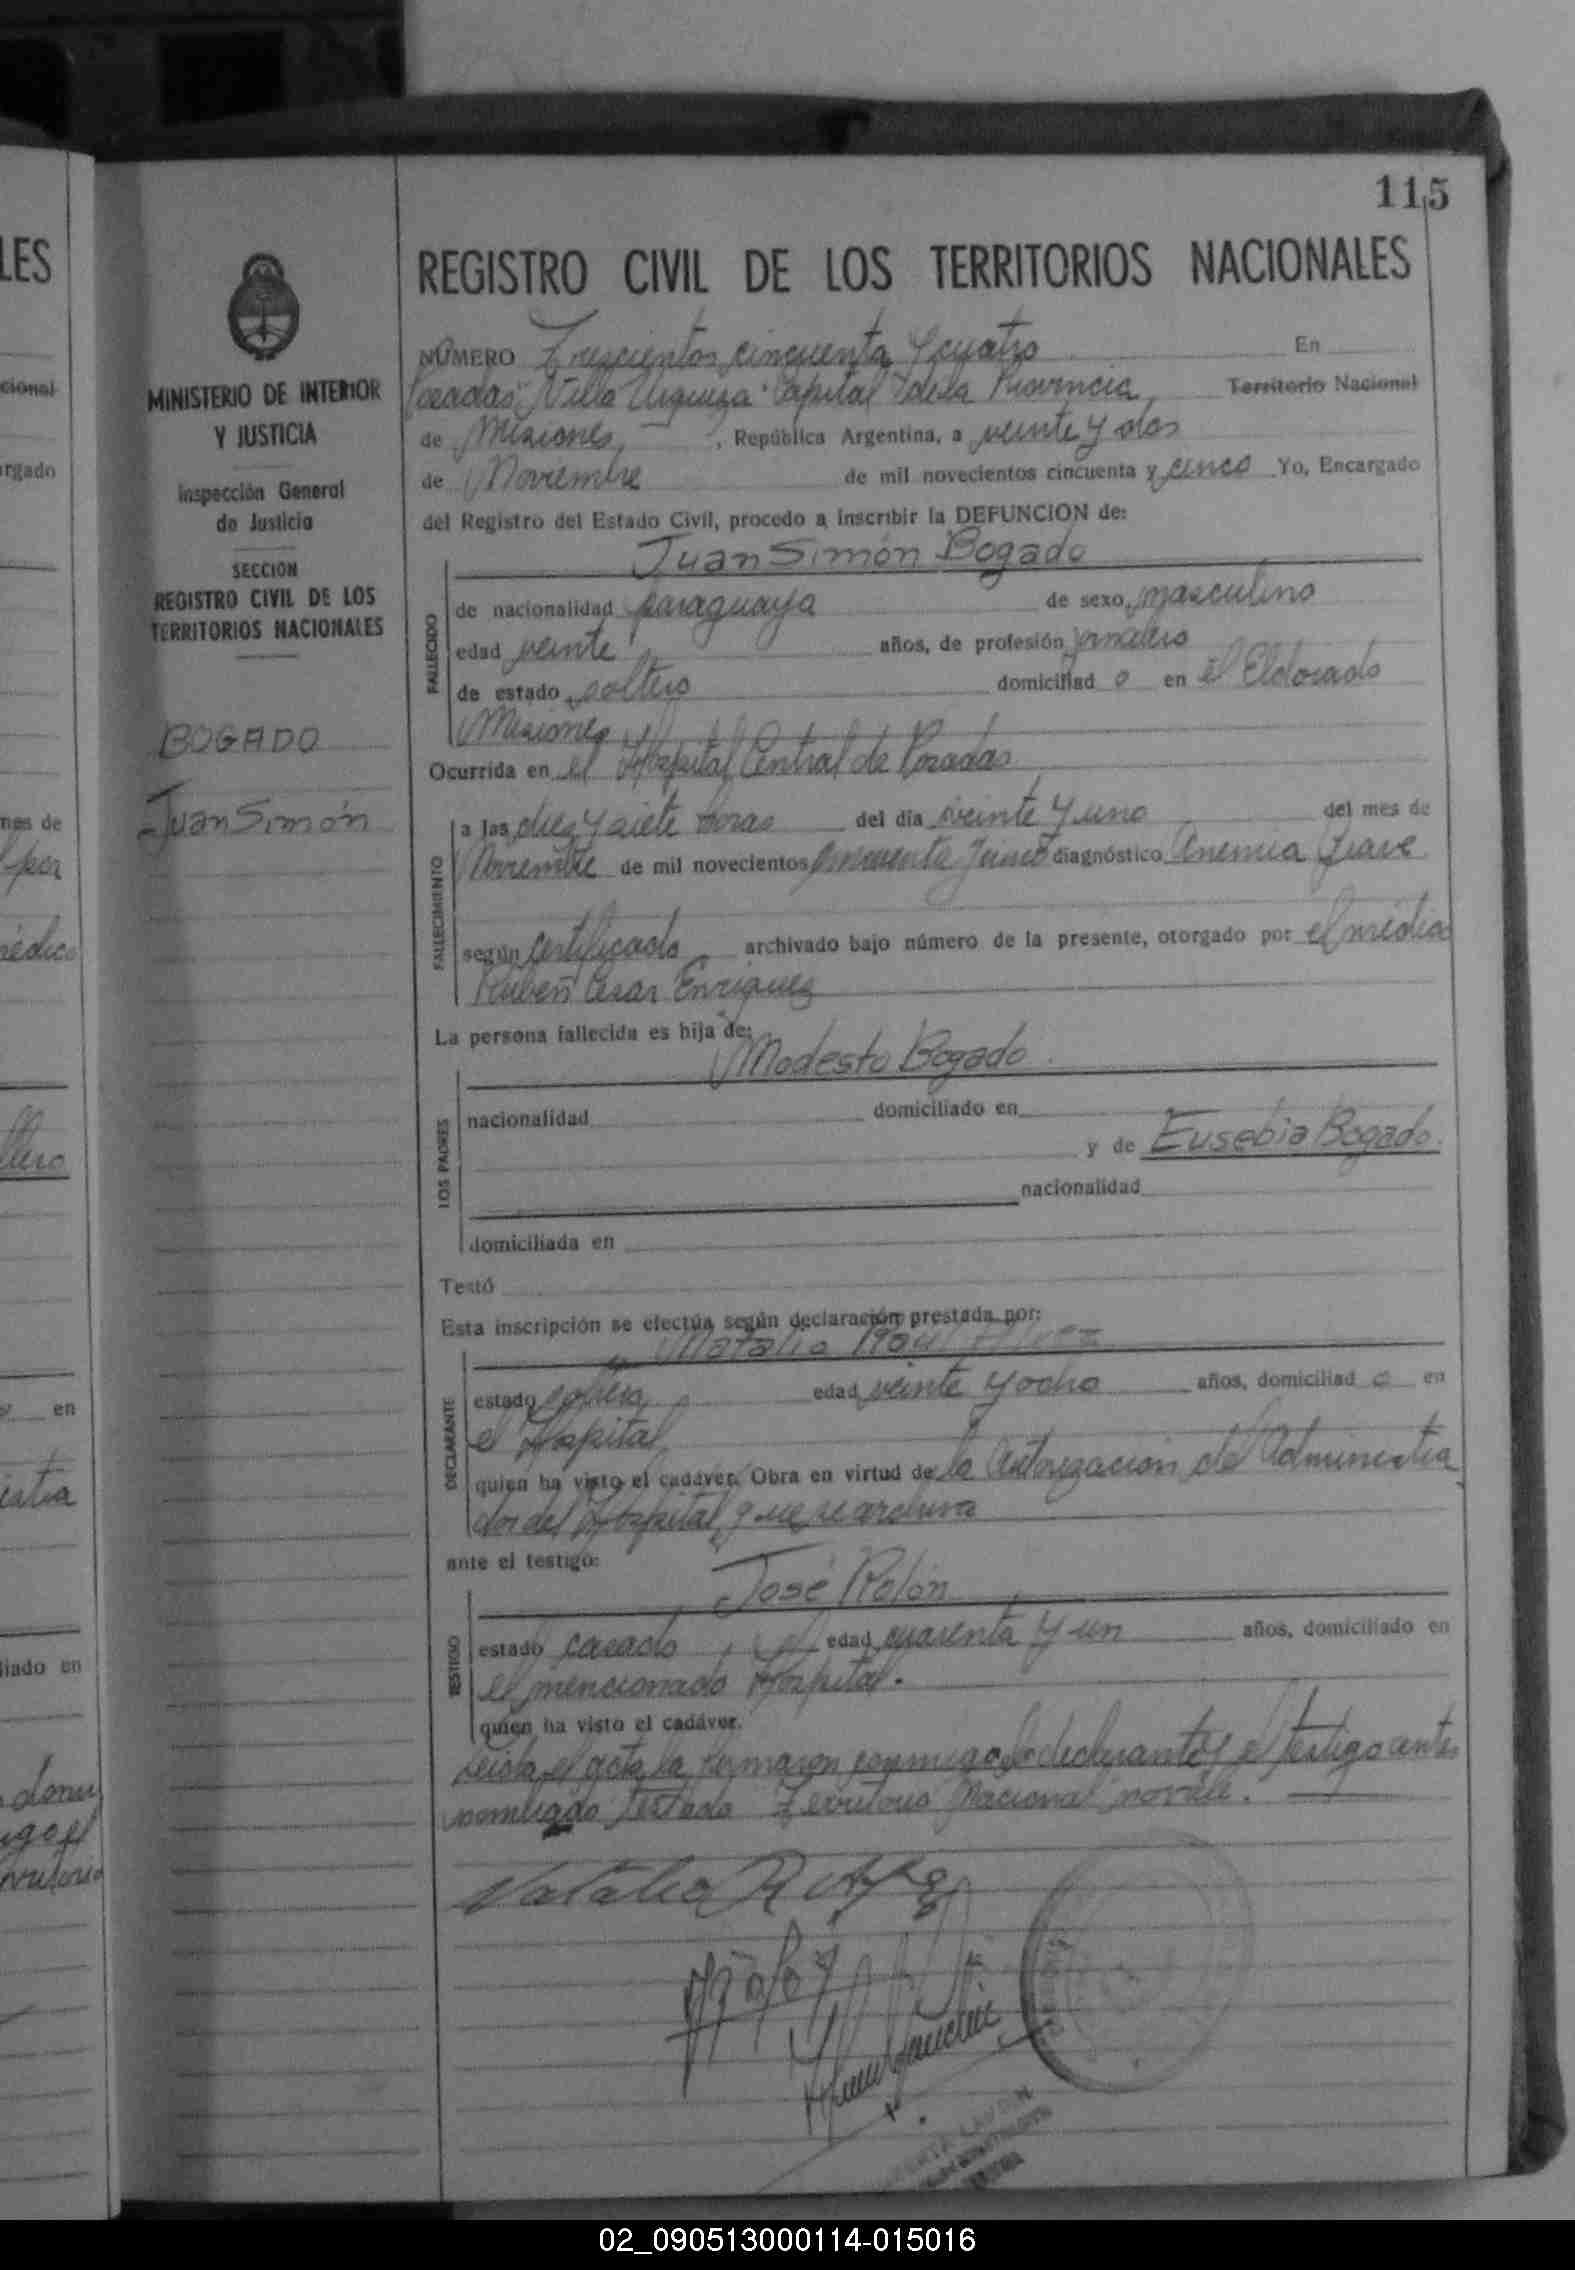 115
LES
REGISTRO CIVIL DE LOS TERRITORIOS NACIONALES
MINISTERIO DE INTERIOR
Y JUSTICIA
Inspección General
de Justicia
SECCION
REGISTRO CIVIL DE LOS
TERRITORIOS NACIONALES
BOGADO
Juan Simón
NÚMERO Trescientos cincuenta y cuatro En
Posadas "Villa Urquiza" Capital de la Provincia Territorio Nacional
de Misiones, República Argentina, a veinte y dos
de Noviembre de mil novecientos cincuenta y cinco Yo, Encargado
del Registro del Estado Civil, procedo a inscribir la DEFUNCION de:
Juan Simón Bogado
FALLECIDO
de nacionalidad paraguaya de sexo masculino
edad veinte años, de profesión jornalero
de estado soltero domiciliad o en el Eldorado
Misiones
Ocurrida en el Hospital Central de Posadas
FALLECIMIENTO
a las diez y siete horas del día veinte y uno del mes de
Noviembre de mil novecientos cincuenta y cinco diagnóstico Anemia Grave
según certificado archivado bajo número de la presente, otorgado por el médico
Rubén Cesar Enriquez
La persona fallecida es hija de:
Modesto Bogado.
LOS PADRES
nacionalidad domiciliado en
y de Eusebia Bogado.
nacionalidad
domiciliada en
Testó
Esta inscripción se efectúa según declaración prestada por:
Natalio
DECLARANTE
estado soltero, edad veinte y ocho años, domiciliad o en
el Hospital
quien ha visto el cadáver. Obra en virtud de la Autorización del Administra
dor del Hospital, que se archiva
ante el testigo:
José Rolón
TESTIGO
estado casado, edad cuarenta y un años, domiciliado en
el mencionado Hospital.
quien ha visto el cadáver.
Leida el acta la firmaron conmigo el declarante y el testigo antes
nombrado Testado Territorio Nacional no vale.
Natalio R
02_090513000114-015016